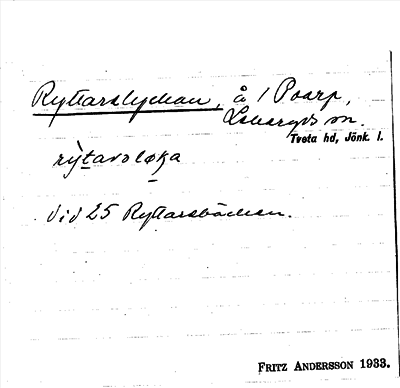 Ryttarslyckan, å 1 Poarp,
Lekeryds sn.
Tveta hd, Jönk. l.
rỳtarsløka
Vid 25 Ryttarsbäcken.
FRITZ ANDERSSON 1933.